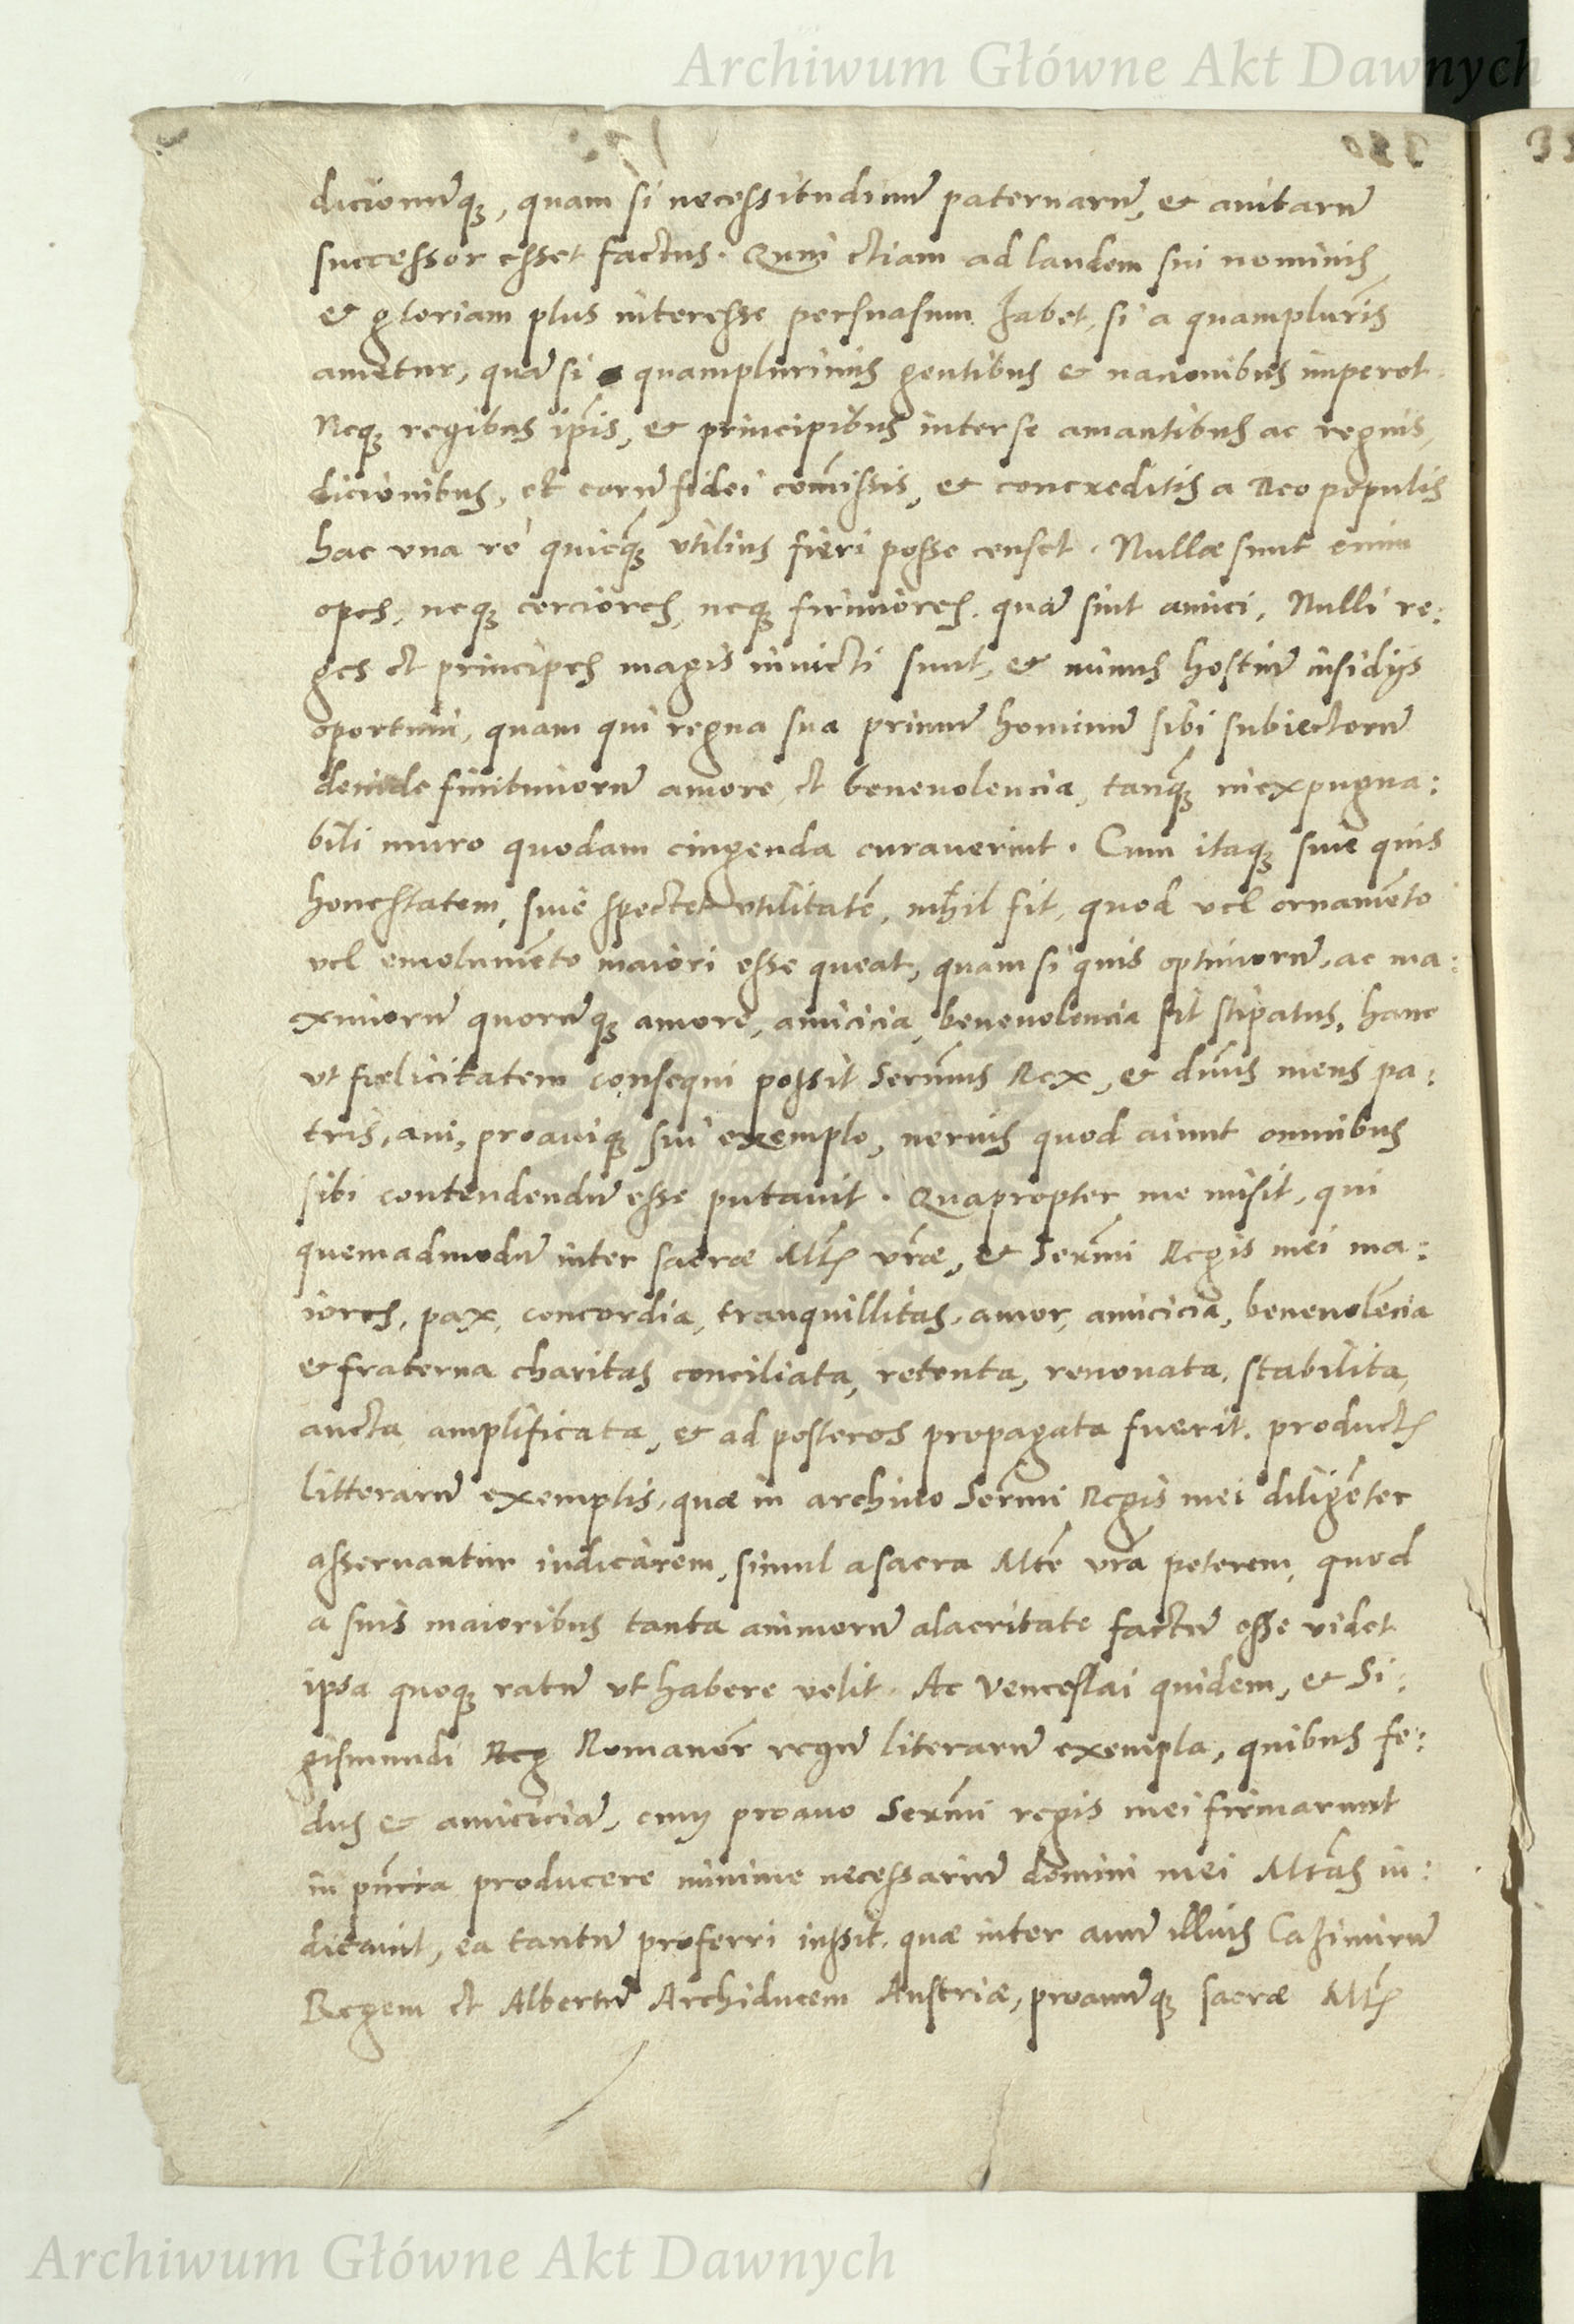 Archiwum Główne Akt Dawnych
dicionũq̃, quam si necessitudinũ paternarũ, & auitarũ
successor esset factus. Quin etiam ad laudem sui nominis
& gloriam plus interesse persuasum habet, si a quamplurĩs
ametur, quã si quamplurimis gentibus & nacionibus imperet.
Neq̃ regibus ip̃is, & principibus inter se amantibus ac regnis,
dicionibus, et eorũ fidei com̃issis, & concreditis a Deo populis
hac vna re quicq̃ vtilius fieri posse censet. Nullæ sunt enim
opes, neq̃ cerciores, neq̃ firmiores. quã sint amici, Nulli re:
ges et principes magis inuicti sunt, & minus hostiũ insidijs
oportuni, quam qui regna sua primũ hominũ sibi subiectorũ
deinde finitimorũ amore et beneuolencia, tanq̃ inexpugna:
bili muro quodam cingenda curauerint. Cum itaq̃ siue quis
honestatem, siue spectet vtilitatẽ, nihil sit, quod vel ornamẽto
vel emolumẽto maiori esse queat, quam si quis optimorũ, ac ma:
ximorũ quorũq̃ amore, amicicia, beneuolencia sit stipatus, hanc
vt fœlicitatem consequi possit Serm̃us Rex, & dñus meus pa:
tris, aui, proauiq̃ sui exemplo, neruis quod aiunt omnibus
sibi contendendũ esse putauit. Quapropter me misit, qui
quemadmodũ inter sacræ Mt̃is vr̃æ, & Serm̃i Regis mei ma:
iores, pax, concordia, tranquillitas, amor, amicicia, beneuolẽcia
& fraterna charitas conciliata, retenta, renouata, stabilita,
aucta amplificata, & ad posteros propagata fuerit. productis
litterarũ exemplis, quæ in archiuo Serm̃i Regis mei diligẽter
asseruantur indicarem, simul a sacra Mtẽ vr̃a peterem, quod
a suis maioribus tanta animorũ alacritate factũ esse videt
ipsa quoq̃ ratũ vt habere velit. Ac Venceslai quidem, & Si:
gismundi Reg Romanor̃ regũ literarũ exempla, quibus fe:
dus & amiciciã, cum proauo Serm̃i regis mei firmarunt
in pñcia producere minime necessariũ domini mei Mtãs iu:
dicauit, ea tantũ proferri iussit. quæ inter auũ illius Cazimirũ
Regem et Albertũ Archiducem Austriæ, proauũq̃ sacræ Mt̃is
Archiwum Główne Akt Dawnych